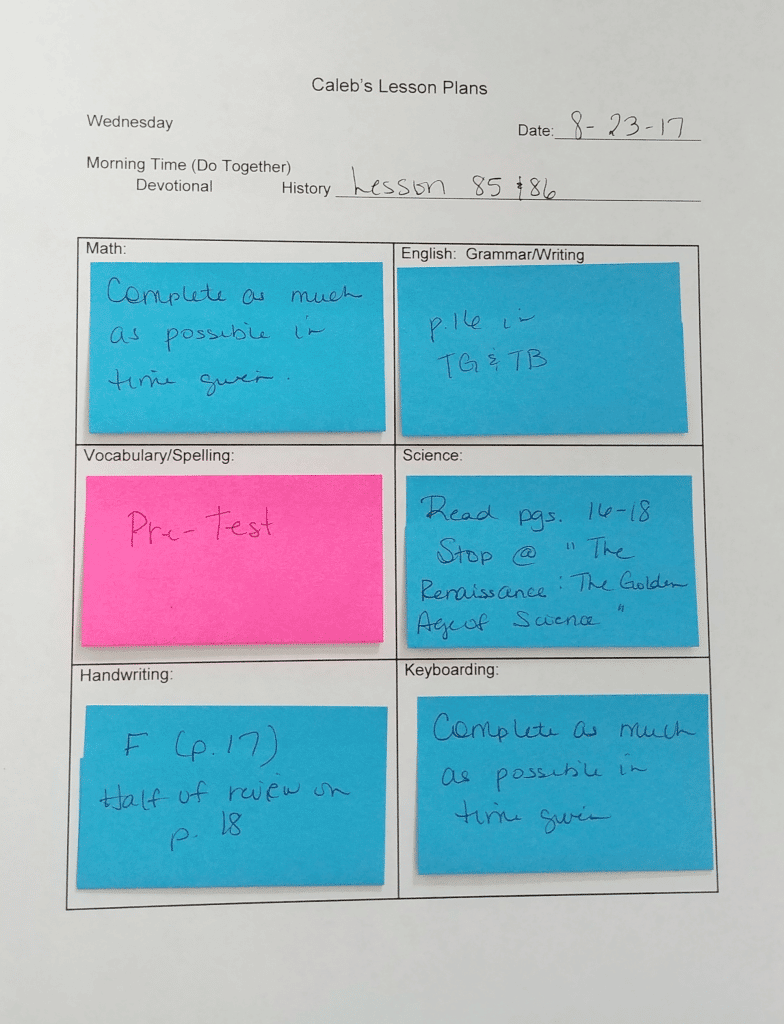 Caleb's Lesson Plans
Wednesday
Date: 8-23-17
Morning Time (Do Together)
Devotional History Lesson 85 & 86
Math:
Complete as much
as possible in
time given.
English: Grammar/Writing
p.16 in
TG & TB
Vocabulary/Spelling:
Pre-Test
Science:
Read pgs. 16-18
Stop @ "The
Renaissance: The Golden
Age of Science"
Handwriting:
F (p.17)
Half of review on
p. 18
Keyboarding:
Complete as much
as possible in
time given